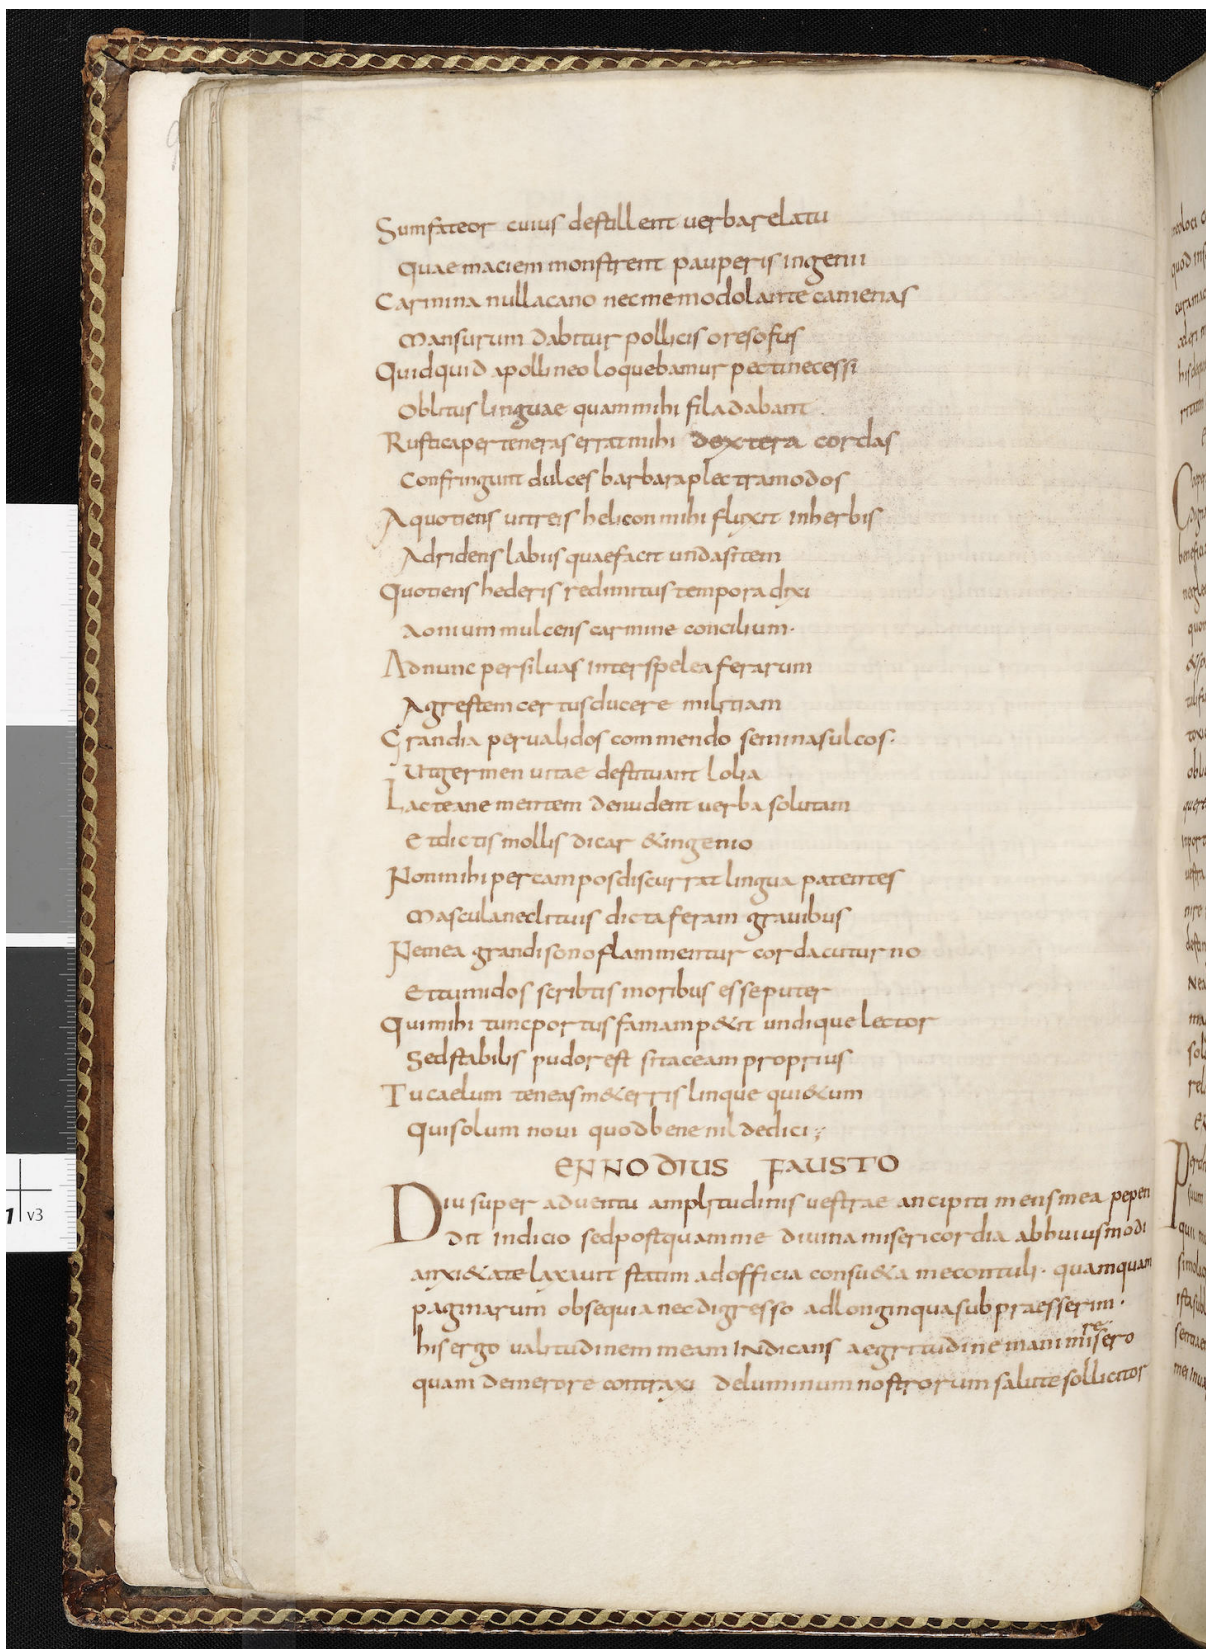 Sumfateor cuius destillent uerbarelatu
Quaemaciem monstrent pauperis ingenii
Carmina nullacano necmemodolante camenas
Mansurum dabitur pollicis oresofus
Quidquid apollineo loquebamur pectinecessi
Oblitus linguae quammihi filadabant
Rusticaperteneras erratmihi dextera cordas
Confringunt dulces barbaraplectramodos
Aquotiens uitreis heliconmihi fluxit inherbis
Adridens labiis quaefacit undasitem
Quotiens hederis redimitus tempora dixi
Aonium mulcens carmine concilium·
Adnunc persiluas interspelea ferarum
Agrestem certusducere militiam
Grandia perualidos commendo seminasulcos·
Utigermen uitae destituant lolia
Lacteane mentem denudent uerba solutam
Etdictis mollis dicar &ingenio
Nonmihi percamposdiscurrat lingua patentes
Masculaneclituis dictaferam grauibus
Nemea grandisono flammentur cordacuturno
Ettumidos scribtis moribus esseputer
Quimihi tuncportus famamp&it undique lector
Sedstabilis pudorest sitaceam proprius
Tucaelum teneasm&erris linque qui&um
Quisolum noui quodbene nil dedici;
ENNODIUS FAUSTO
Diu super aduentu amplitudinis uestrae ancipiti mensmea pepen
dit indicio sedpostquamme diuinamisericordia abhuiusmodi
anxi&atelaxauit statim adofficia consu&a mecontuli· quamquam
paginarum obsequianecdigresso adlonginquasubpraesserim·
his ergo ualitudinem meam INdicans aegritudine
re
quam demerore contraxi deluminumnostrorum salutesollicitor